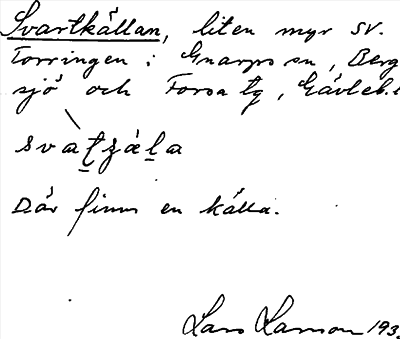 Svartkällan, liten myr sv.
Torringen i Gnarps sn, Berg
sjö och Forsa tg, Gävleb.l
svatzäla
Där finns en källa.
Lars Larsson 193